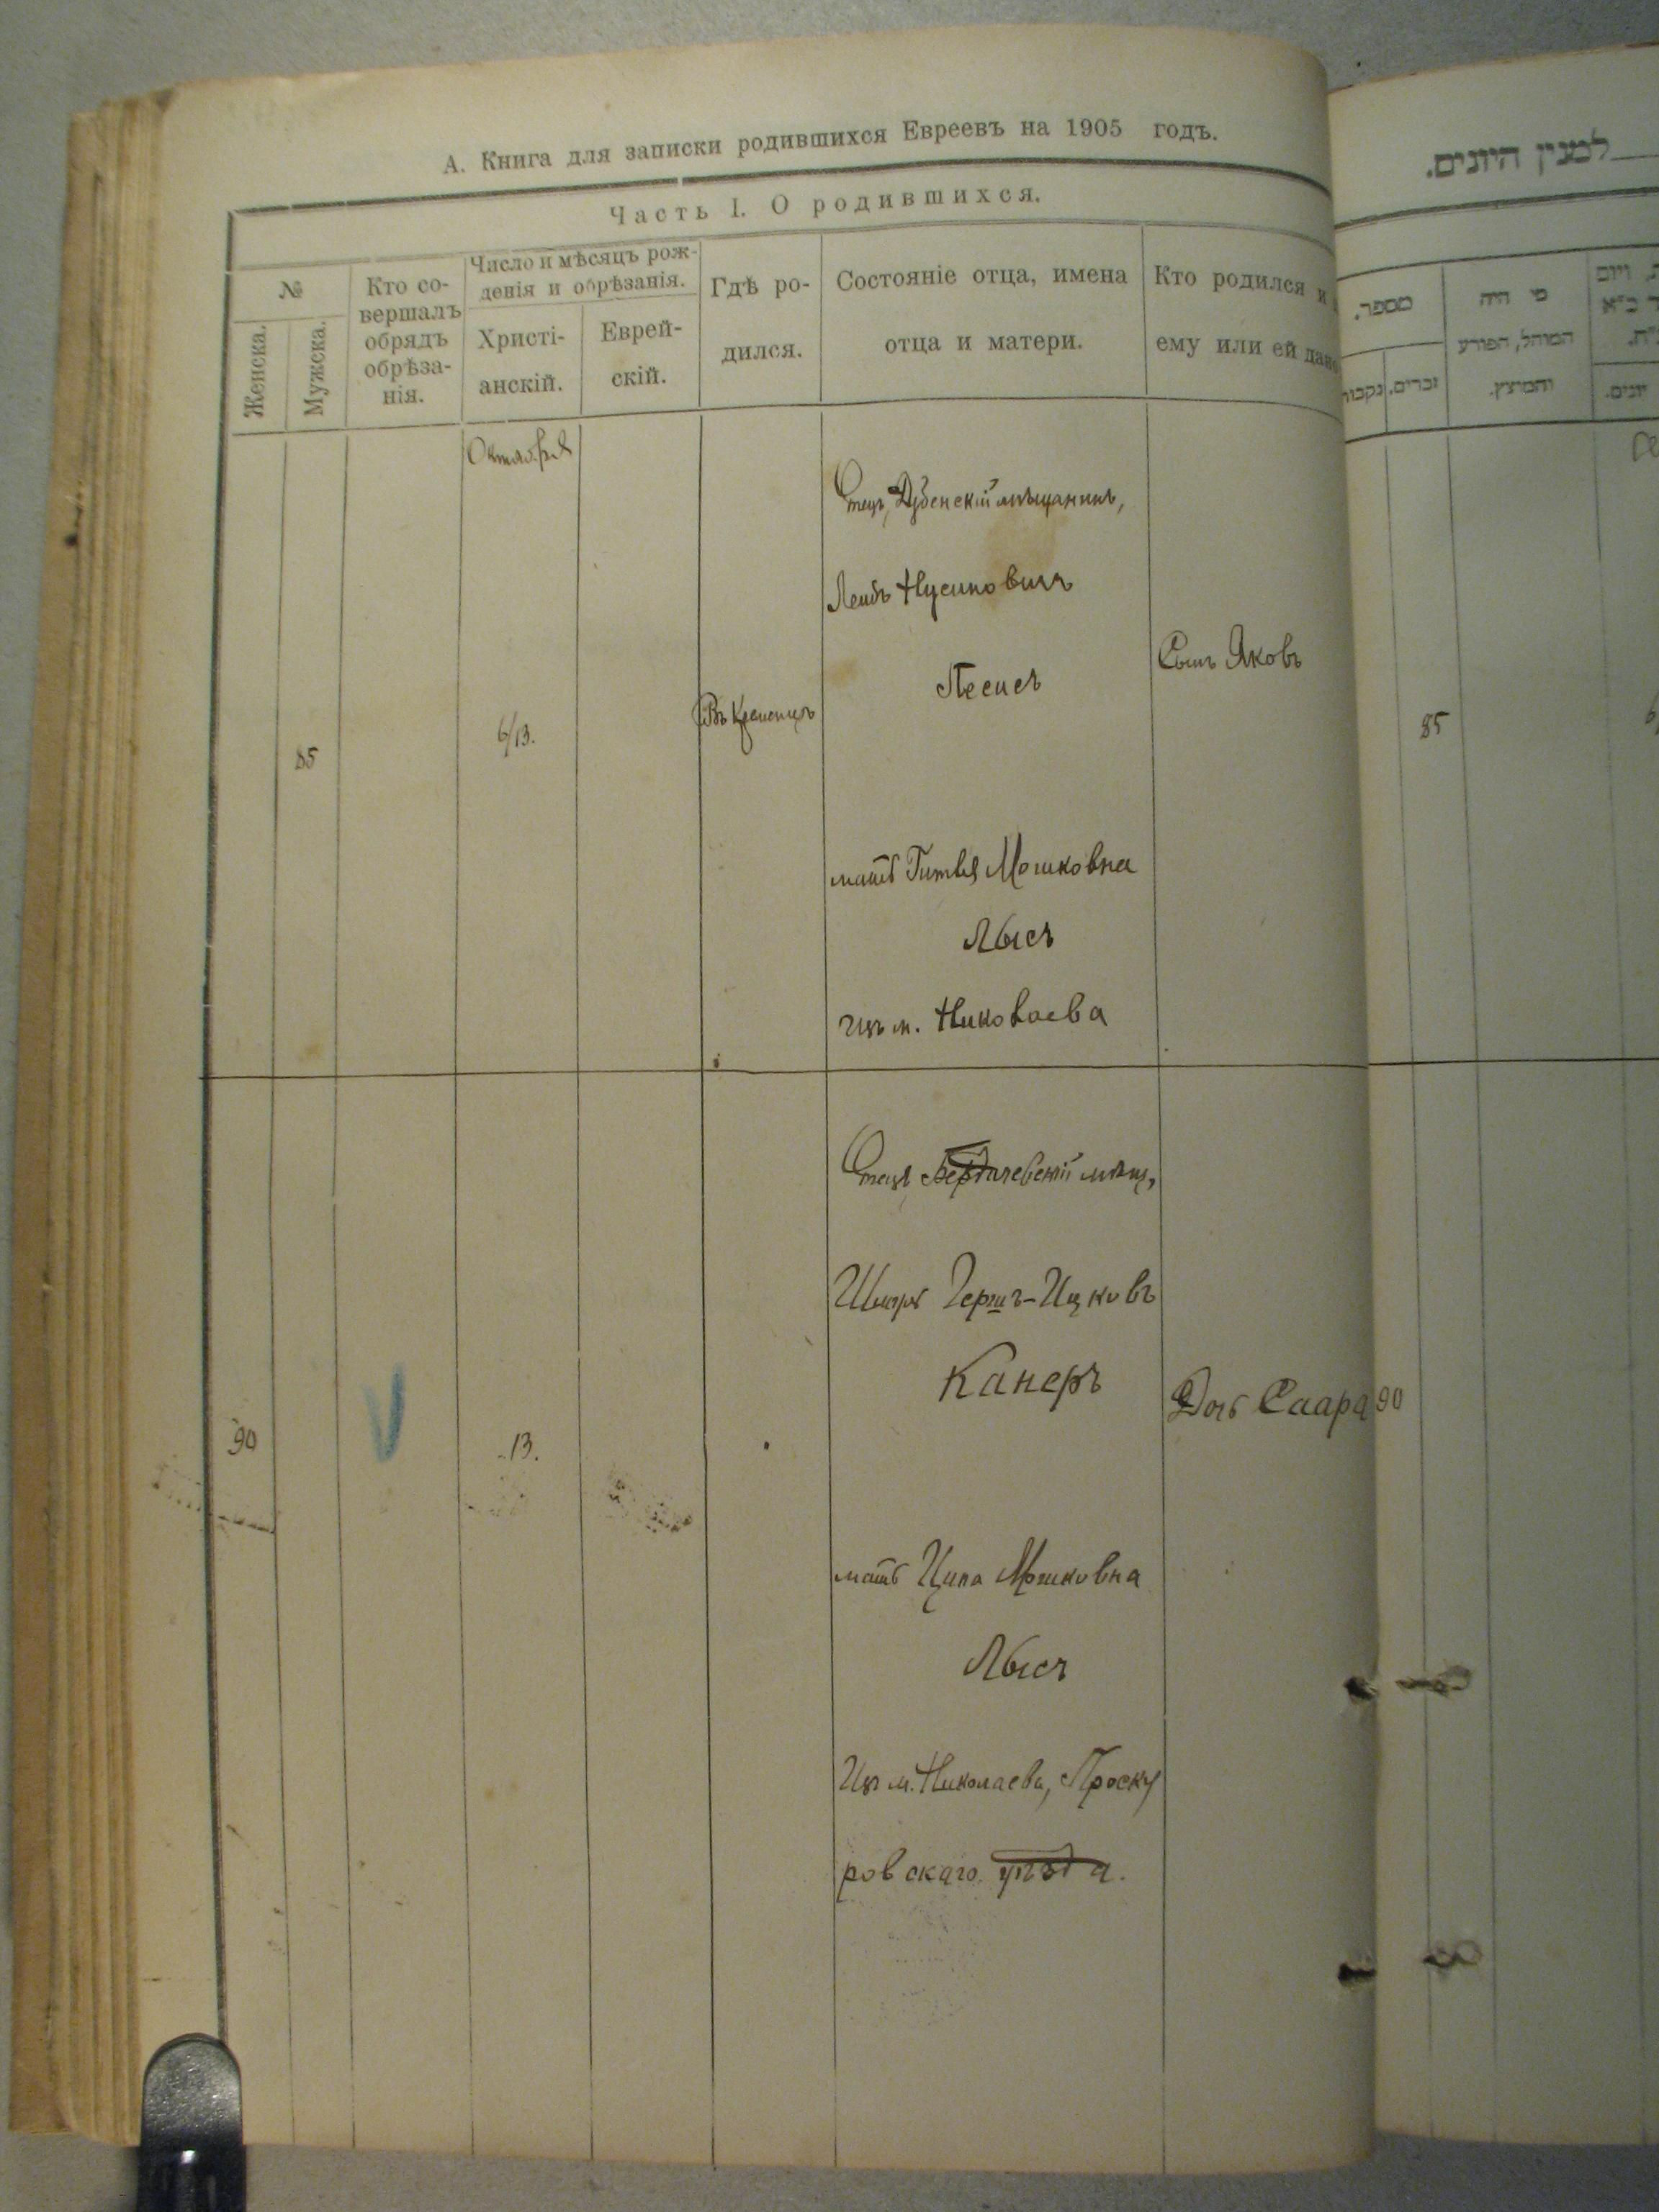 А. Книга для записки родившихся Евреевъ на 1905 годъ.
Часть I. О родившихся.
№
Женска.
Мужска.
Кто со-
вершалъ
обрядъ
обрѣза-
нія.
Число и мѣсяцъ рож-
денія и обрѣзанія.
Христі-
анскій.
Еврей-
скій.
Гдѣ ро-
дился.
Состояніе отца, имена
отца и матери.
Кто родился и
ему или ей дано
Октября
85
6/13.
Въ Кременцѣ
Отецъ, Дубенскій мѣщанинъ,
Лейбъ Нусиновичъ
Песисъ
мать Гитля Мошковна
Лысъ
Изъ м. Николаева
Сынъ Яковъ
90
13.
Отецъ Бердичевскій мѣщ,
Гершъ-Ицковъ
Канеръ
мать Ципа Мошковна
Лысъ
Изъ м. Николаева, Проску
ровскаго уѣзда.
Дочь Саара
למנין היונים.
מספר.
נקבות
זכרים.
מי היה
המוהל, הפורע
והמוצץ.
יונים.
85
90